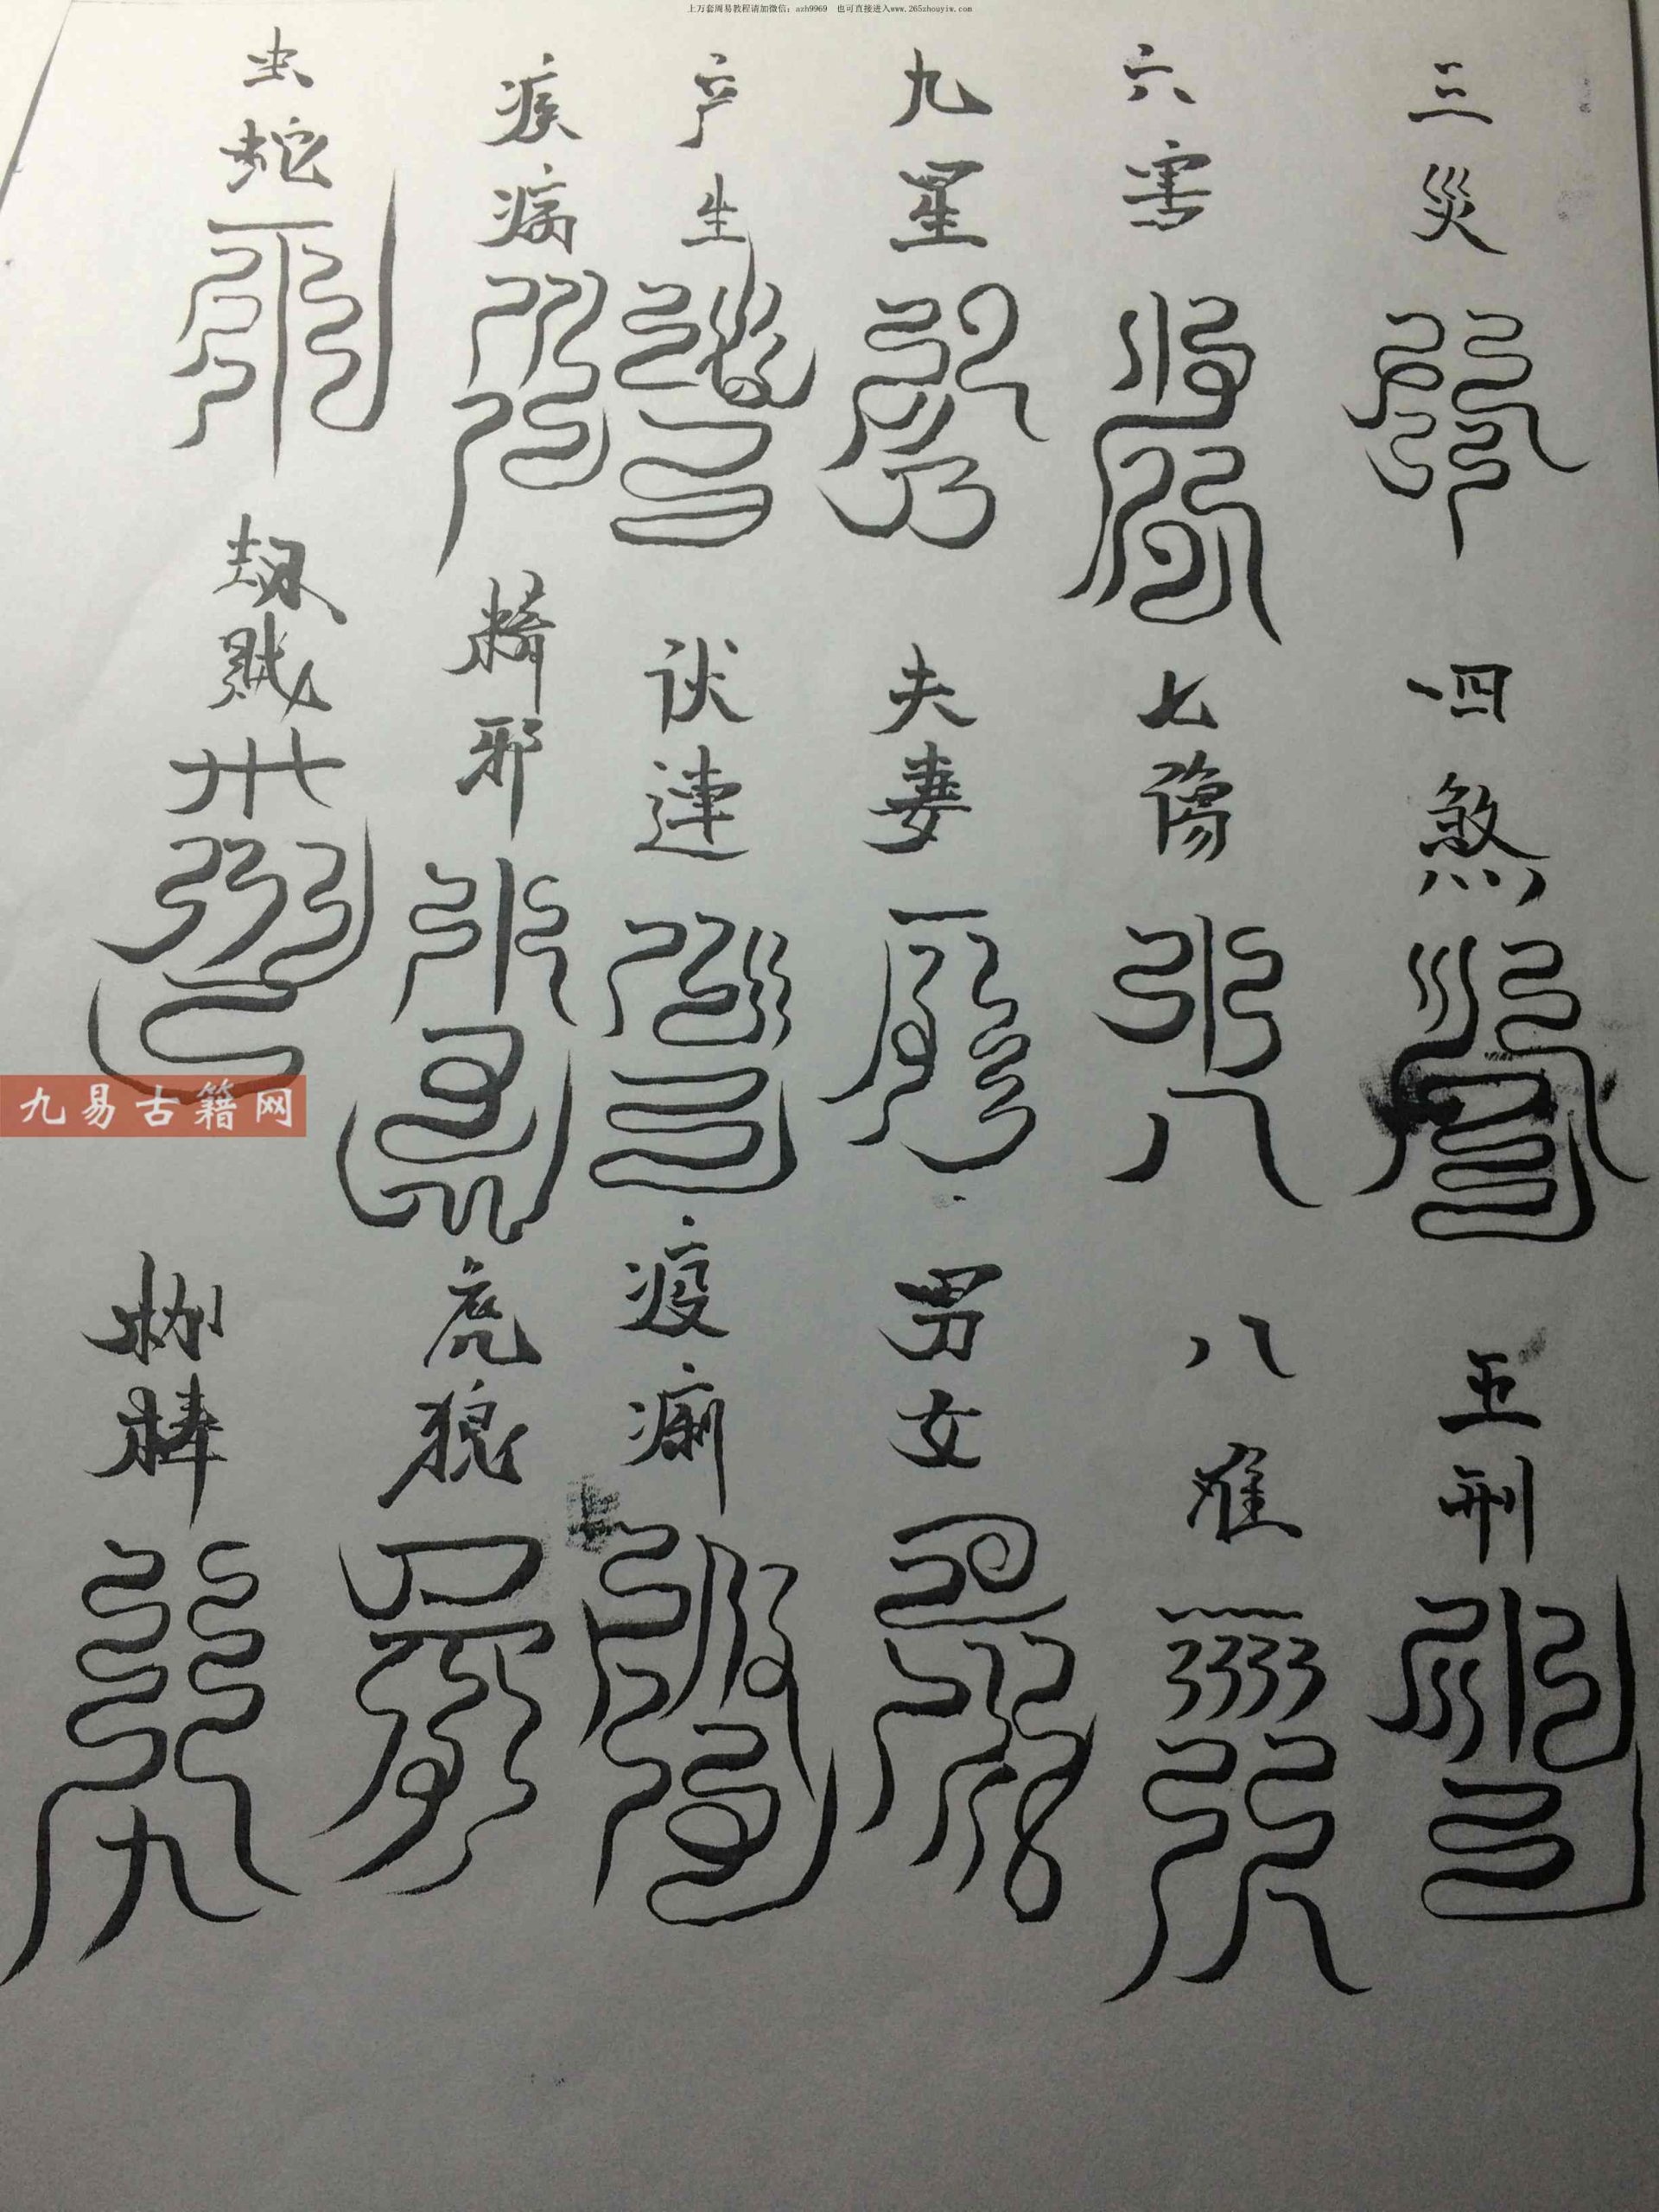 上万套周易教程请加微信：azh9969 也可直接进入www.265zhouyiw.com
三災
四煞
五刑
六害
七傷
八难
九星
夫妻
男女
产生
伏連
疫痢
疾病
精邪
虎狼
虫蛇
劫贼
枷棒
九易古籍网